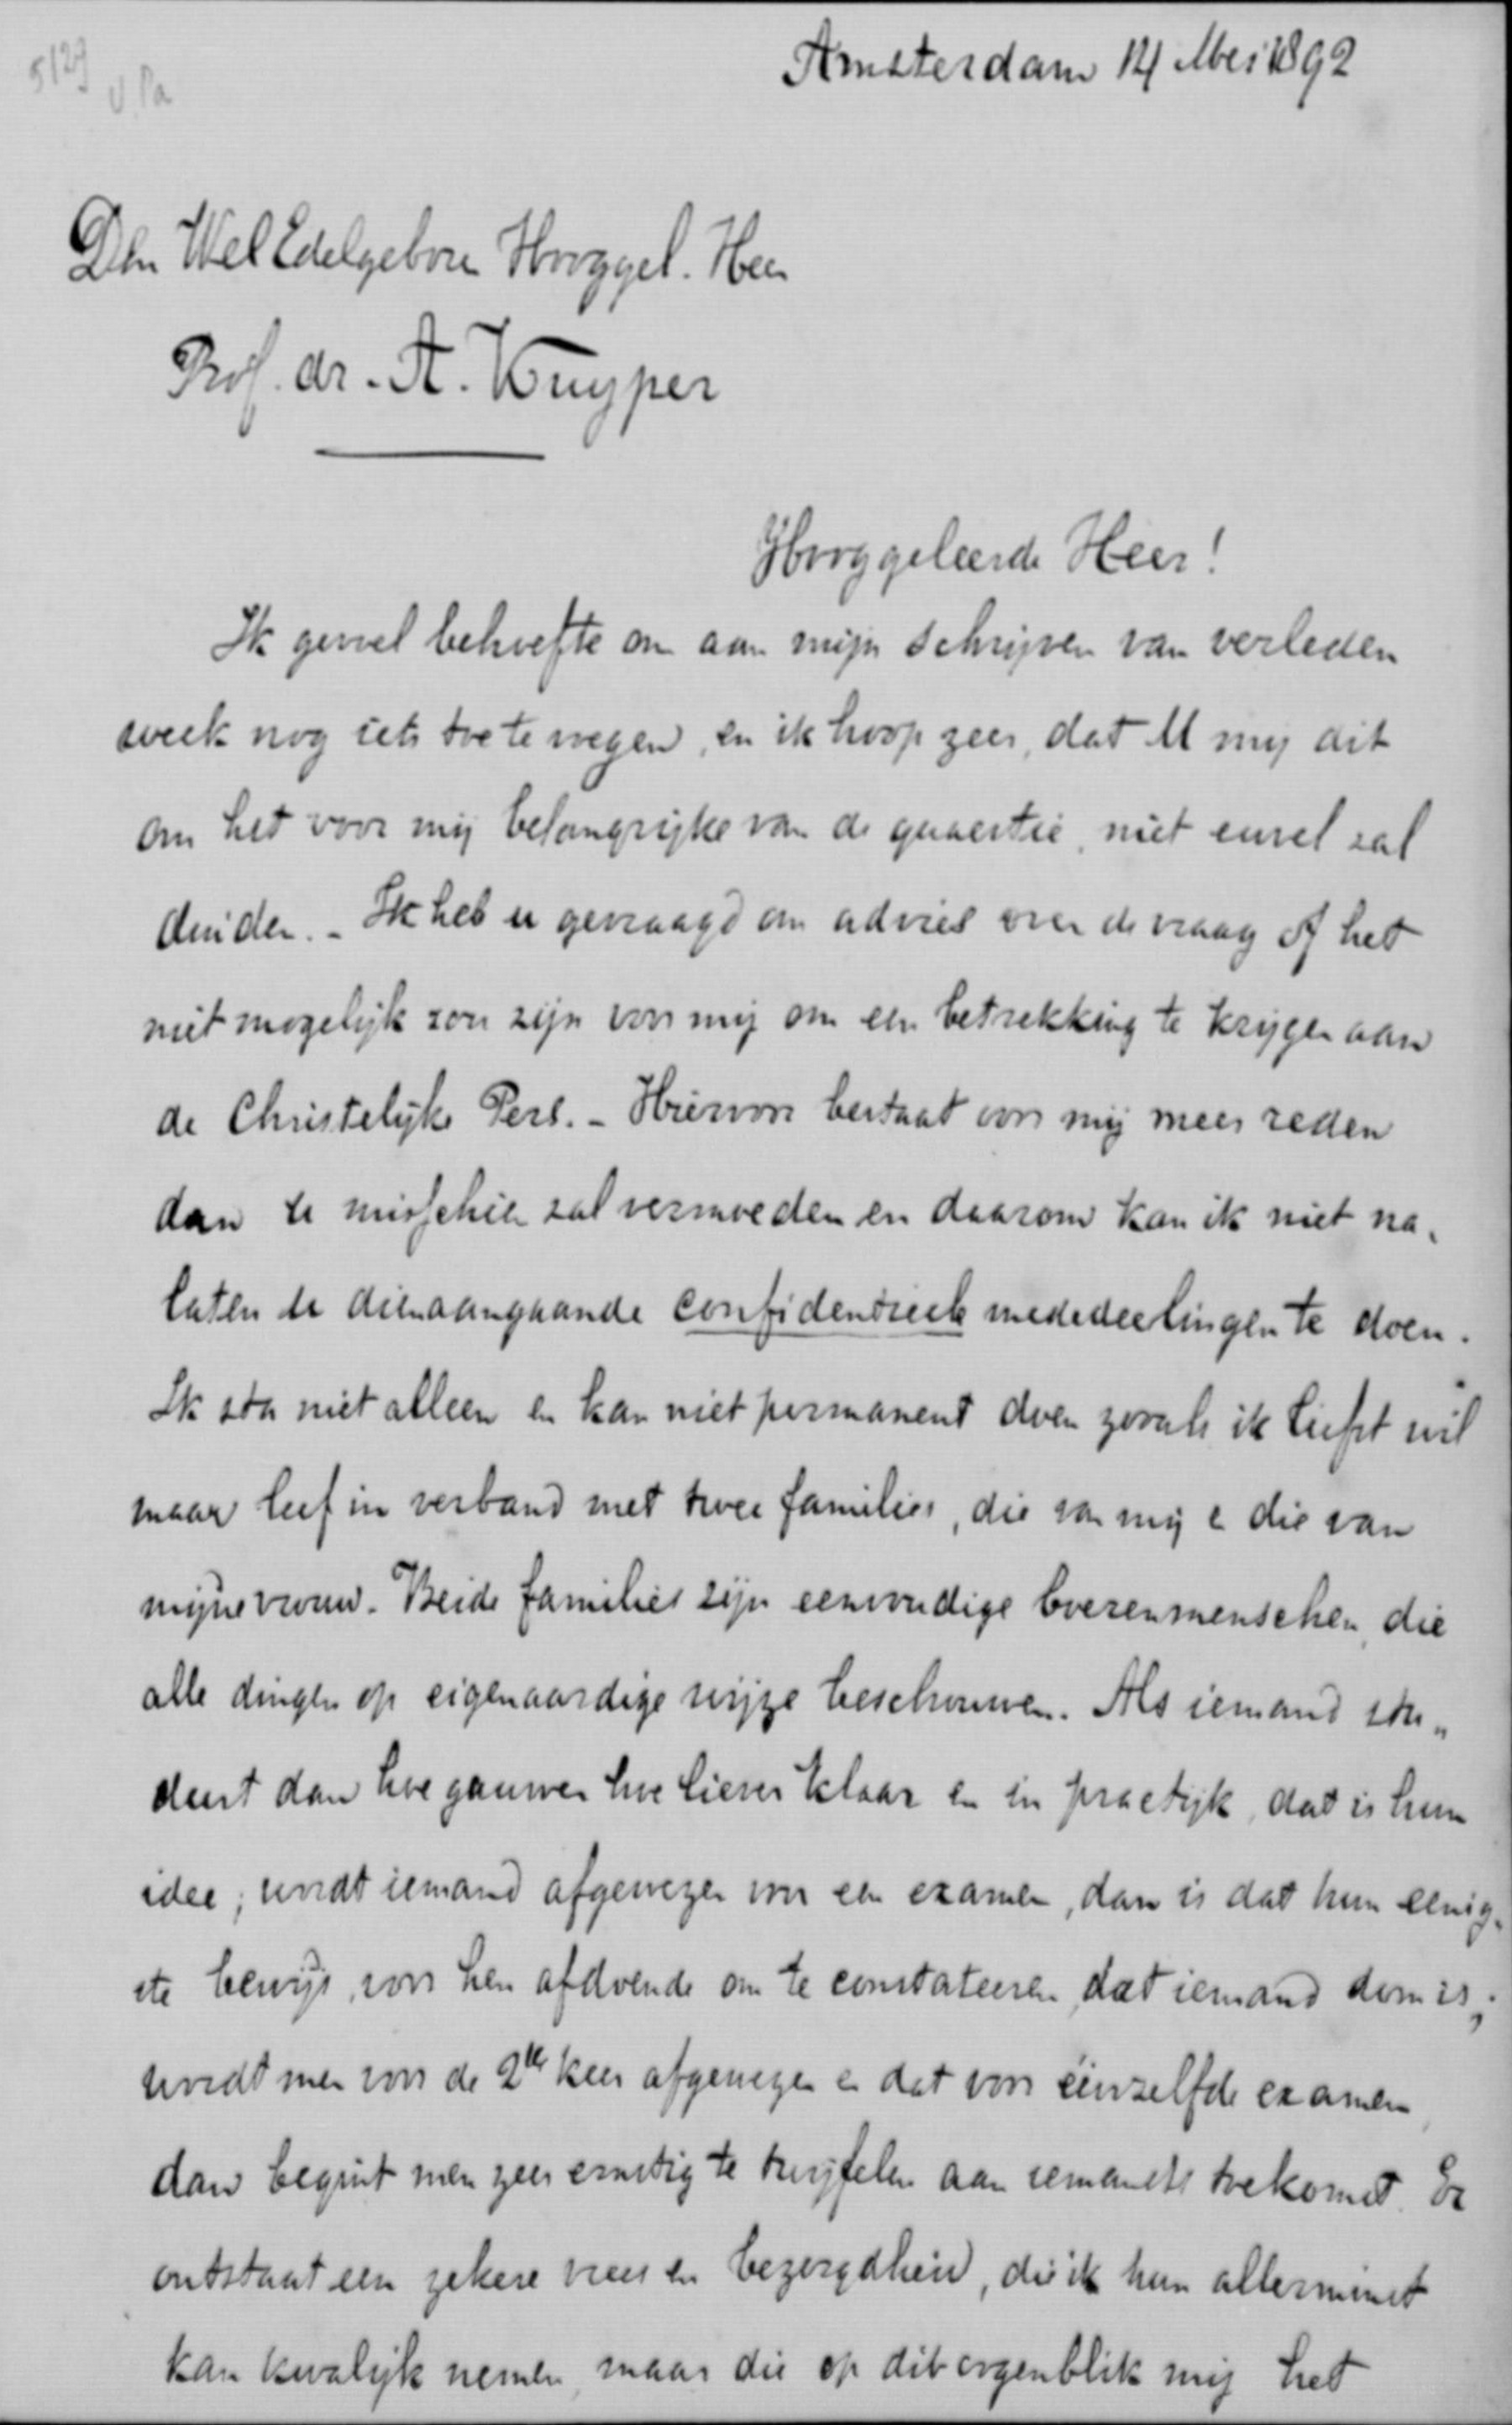 5127
Amsterdam 14 Mei 1892
Den WelEdelgeboren Hooggel. Heer
Prof. dr. A. Kuyper
Hooggeleerde Heer!
Ik gevoel behoefte om aan mijn schrijven van verleden
week nog iets toe te voegen, en ik hoop zeer, dat U mij dit
om het voor mij belangrijke van de quaestie, niet euvel zal
duiden. - Ik heb u gevraagd om advies over de vraag of het
niet mogelijk zou zijn voor mij om een betrekking te krijgen aan
de Christelijke Pers. - Hiervoor bestaat voor mij meer reden
dan U misschien zal vermoeden en daarom kan ik niet na-
laten U dienaangaande confidentieele mededeelingen te doen.
Ik sta niet alleen en kan niet permanent doen zooals ik liefst wil
maar leef in verband met twee families, die van mij en die van
mijne vrouw. Beide families zijn eenvoudige boerenmenschen, die
alle dingen op eigenaardige wijze beschouwen. Als iemand stu-
deert dan hoe gauwer hoe liever klaar en in practijk, dat is hun
idee; wordt iemand afgewezen voor een examen, dan is dat hun eenig-
ste bewijs, voor hen afdoende om te constateeren, dat iemand dom is;
wordt men voor de 2de keer afgewezen en dat voor éénzelfde examen,
dan begint men zeer ernstig te twijfelen aan iemands toekomst. Er
ontstaat een zekere vrees en bezorgdheid, die ik hun allerminst
kan kwalijk nemen, maar die op dit oogenblik mij het